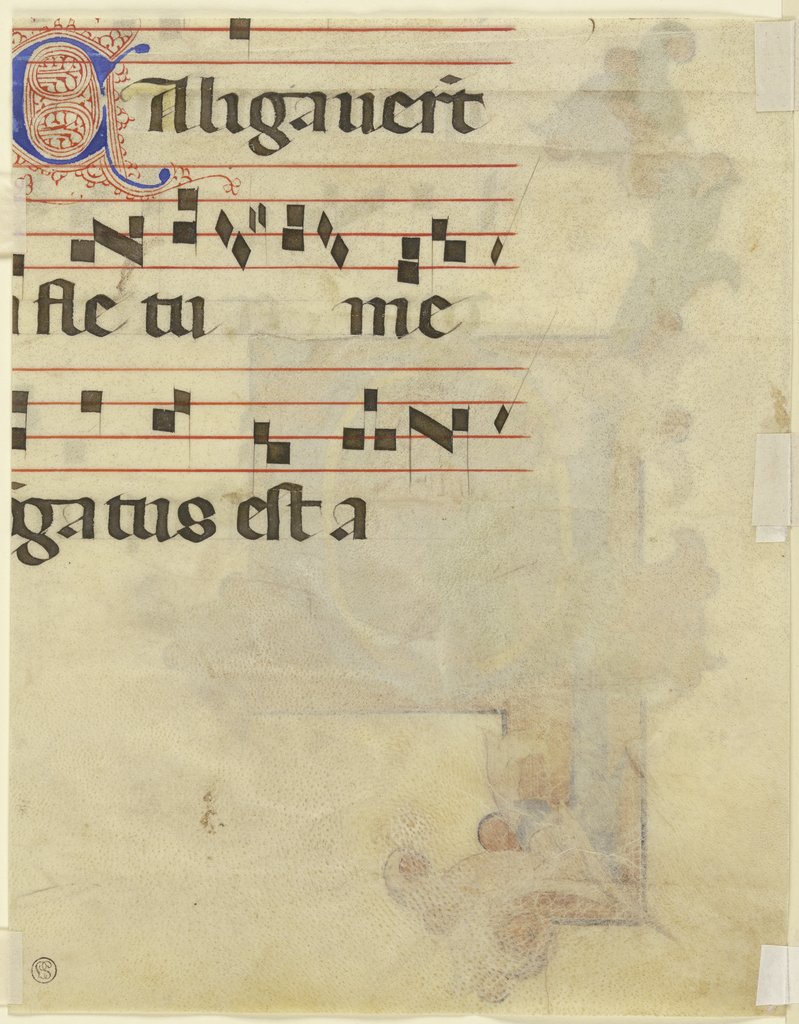 CAligauer̄t
fle tu me
gatus est a